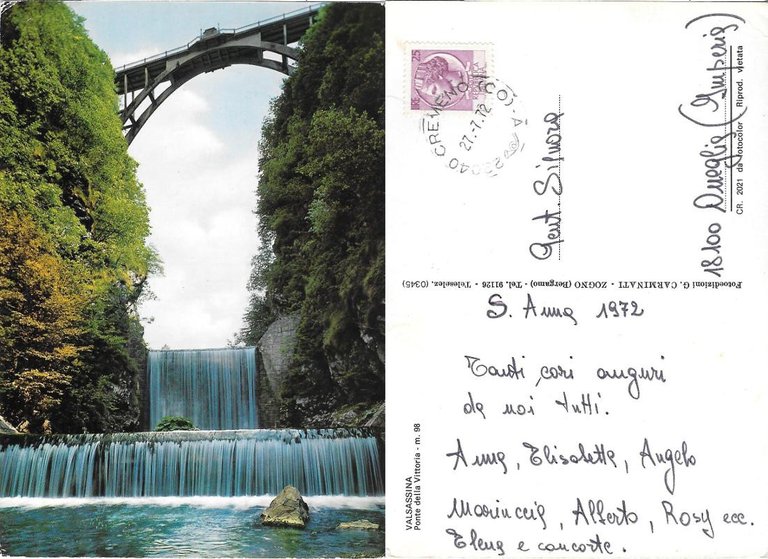 CREMENO
27.7.72
22040
Gent. Signora
18100 Oneglia (Imperia)
CR. 2021 da Fotocolor Riprod. vietata
Fotoedizioni G. CARMINATI - ZOGNO (Bergamo) - Tel. 91126 - Teleselez. (0345)
VALSASSINA
Ponte della Vittoria - m. 98
S. Anna 1972
Tanti cari auguri
da noi tutti.
Anna, Elisabetta, Angelo
Mariuccia, Alberto, Rosy ecc.
Elena e consorte.